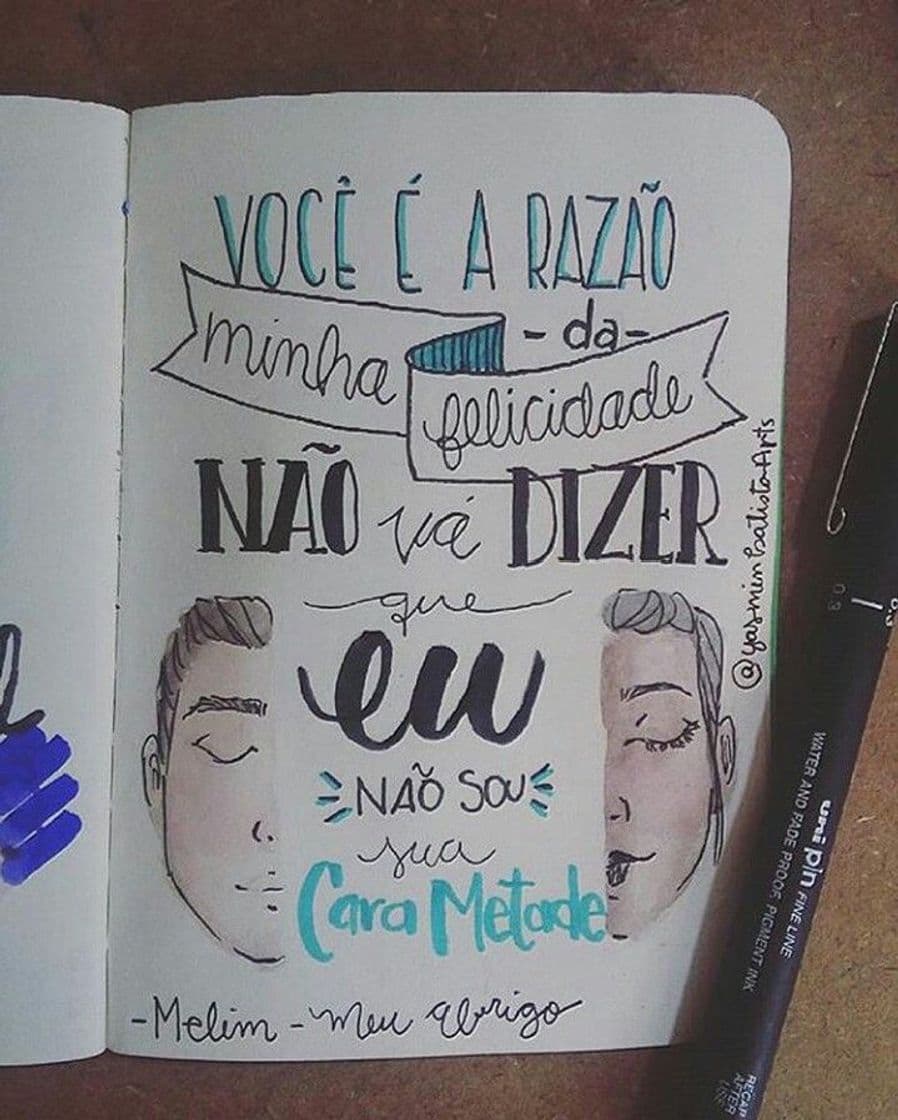 VOCÊ É A RAZÃO
-da-
minha felicidade
NÃO vá DIZER
que
eu
NÃO SOU
sua
Cara Metade
-Melim - Meu Abrigo
@yasminbatistaArts
0.3
uni pin FINE LINE
WATER AND FADE PROOF, PIGMENT INK
RECAP AFTER USE